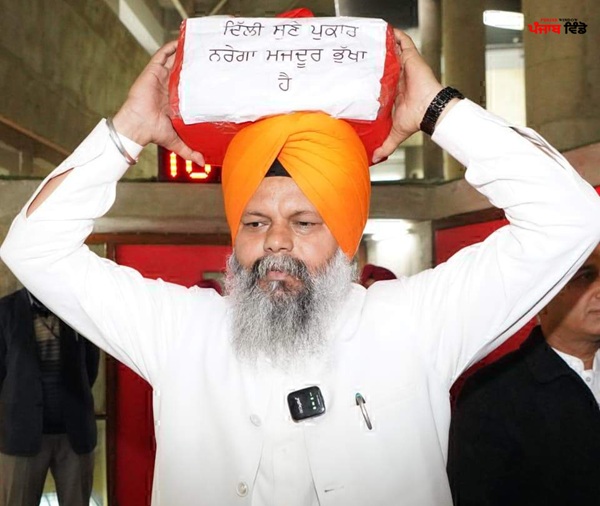 ਦਿੱਲੀ ਸੁਣੇ ਪੁਕਾਰ
ਨਰੇਗਾ ਮਜਦੂਰ ਭੁੱਖਾ
ਹੈ
ਪੰਜਾਬ ਵਿੰਡੋ